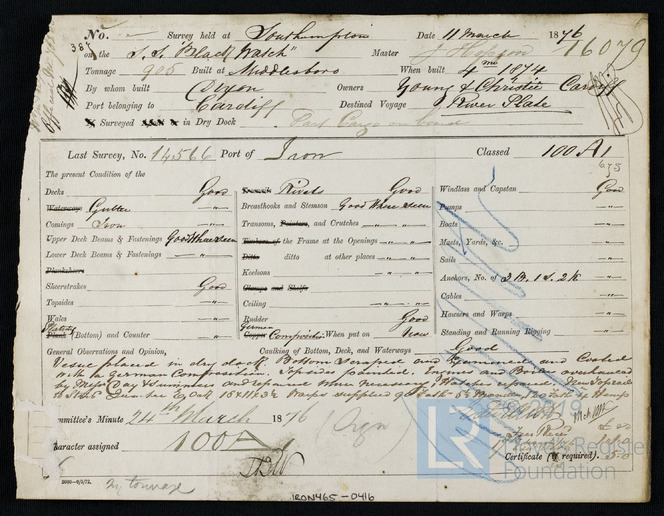 No. Survey held at Southampton Date 11 March 1876
on the S.S. "Black Watch" Master J Hopson 16079
Tonnage 905 Built at Middlesboro When built 4mo 1874
By whom built Dixon Owners Young & Christie Cardiff
Port belonging to Cardiff Destined Voyage River Plate
Surveyed in Dry Dock Part Cargo on board
Last Survey, No. 14566 Port of Iron Classed 100 A1
The present Condition of the
Decks Good Rivets Good Windlass and Capstan Good
Waterways Gutter " Breasthooks and Stemson Good Where Seen Pumps "
Comings Iron " Transoms, Pointers, and Crutches " Boats "
Upper Deck Beams & Fastenings Good Where Seen Timbers of the Frame at the Openings " Masts, Yards, &c. "
Lower Deck Beams & Fastenings " Ditto ditto at other places " Sails "
Planksheers Keelsons " Anchors, No. of 3 B. 1 S. 2 K "
Sheerstrakes Good Clamps and Shelfs Cables "
Topsides " Ceiling " Hawsers and Warps "
Wales " Rudder Good Standing and Running Rigging "
Plating Plank (Bottom) and Counter " German Copper Composition When put on Now
General Observations and Opinion, Caulking of Bottom, Deck, and Waterways Good
Vessel placed in dry dock Bottom Scraped and Examined and Coated
with German Composition. Topsides painted, Engines and Boilers overhauled
by Messrs Day Summers and repaired where necessary
Committee's Minute 24th March 1876
Character assigned 100 A1
Certificate (if required).
2000—9/2/72. My tonnage
© 2019
LR
Lloyd's Register
Foundation
IRON465-0416